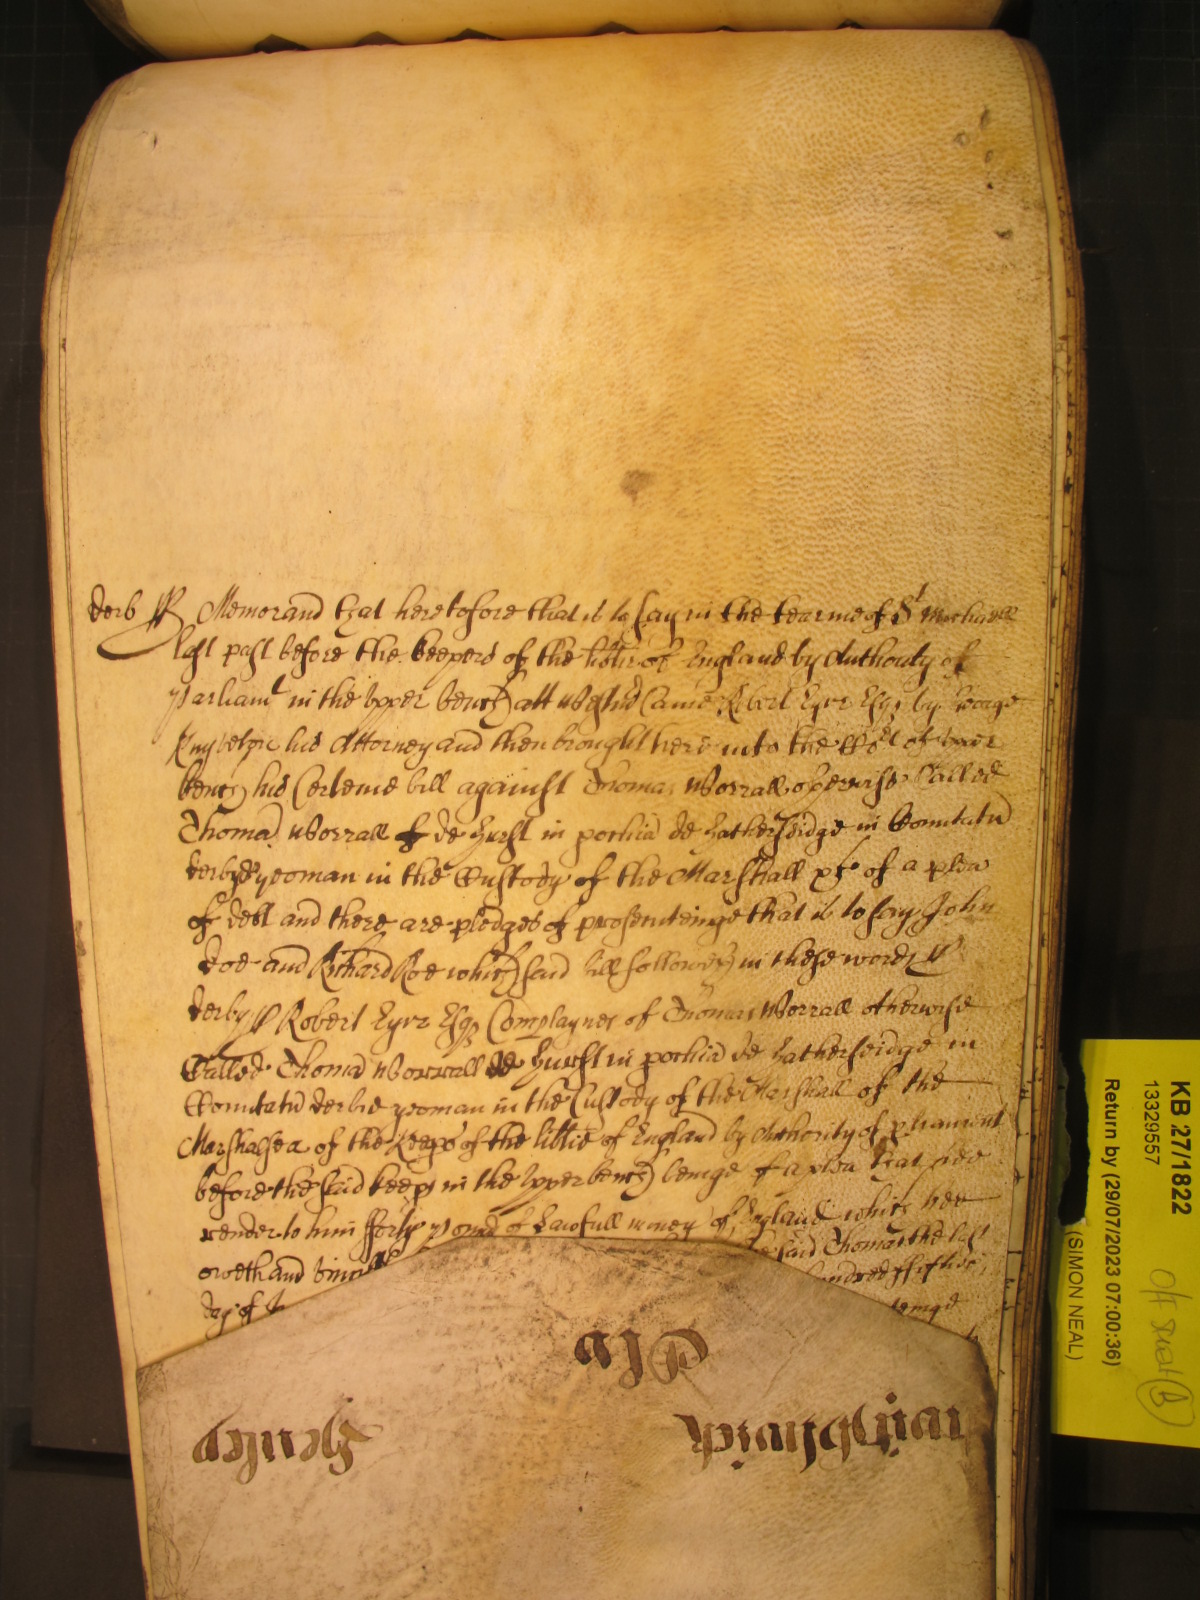 derb ss Memorand that heretofore that is to say in the tearme of St Michaell
last past before the keepers of the libtie of England by Authority of
Parliamt in the upper bench att Westm Came Robert Eyre Esqr by George
his Attorney and then brought here into the Court of upper
bench his Certeine bill against Thomas Worrall otherwise Called
Thomas Worrall de Hurst in pochia de Hathersedge in Comitatu
derby yeoman in the Custody of the Marshall &c of a plea
of debt and there are pledges of prosecuteinge that is to say John
doe and Richard Roe which said bill followeth in these words ss
derby ss Robert Eyre Esqr Complaynes of Thomas Worrall otherwise
Called Thomas Worrall de Hurst in pochia de Hathersedge in
Comitatu derbie yeoman in the Custody of the Marshall of the
Marshalsea of the keeps of the libtie of England by Authority of pliament
before the said keeps in the upper bench beinge of a plea that hee
render to him fforty pound of Lawfull money of England which hee
oweth and said Thomas the last
day of hundred fiftie
Ebb
wingshwich
Henley
KB 27/1822
13329557
Return by (29/07/2023 07:00:36)
(SIMON NEAL)